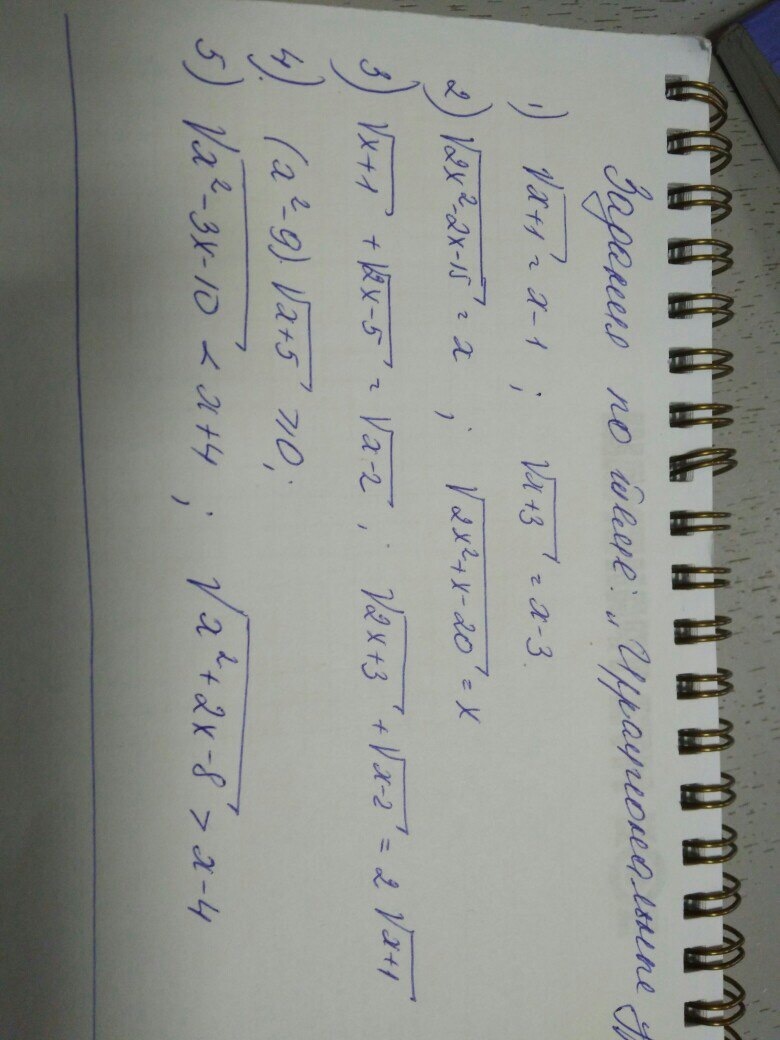 Задание по теме: "Иррациональные
1) √x+1 = x-1 ; √x+3 = x-3.
2) √2x²-2x-15 = x ; √2x²+x-20 = x
3) √x+1 + √2x-5 = √x-2 ; √2x+3 + √x-2 = 2√x+1
4) (x²-9)·√x+5 ≥0;
5) √x²-3x-10 < x+4 ; √x²+2x-8 > x-4